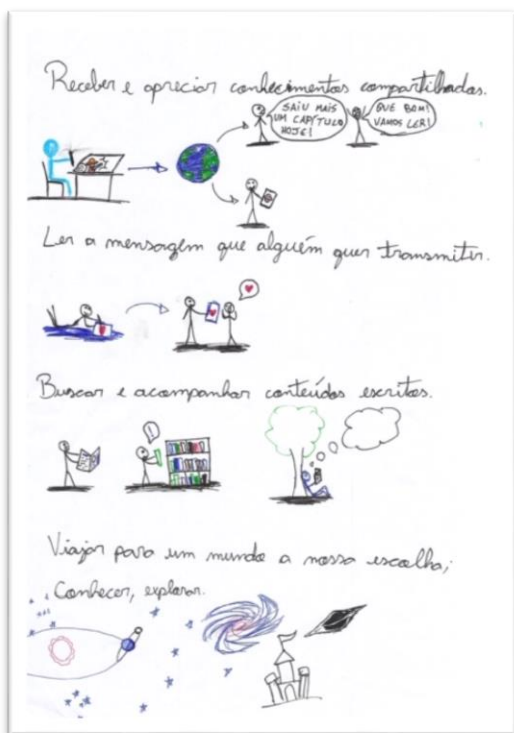 Receber e apreciar conhecimentos compartilhados.
SAIU MAIS
UM CAPÍTULO
HOJE!
QUE BOM!
VAMOS LER!
Ler a mensagem que alguém quer transmitir.
Buscar e acompanhar conteúdos escritos.
!
Viajar para um mundo a nossa escolha;
Conhecer, explorar.